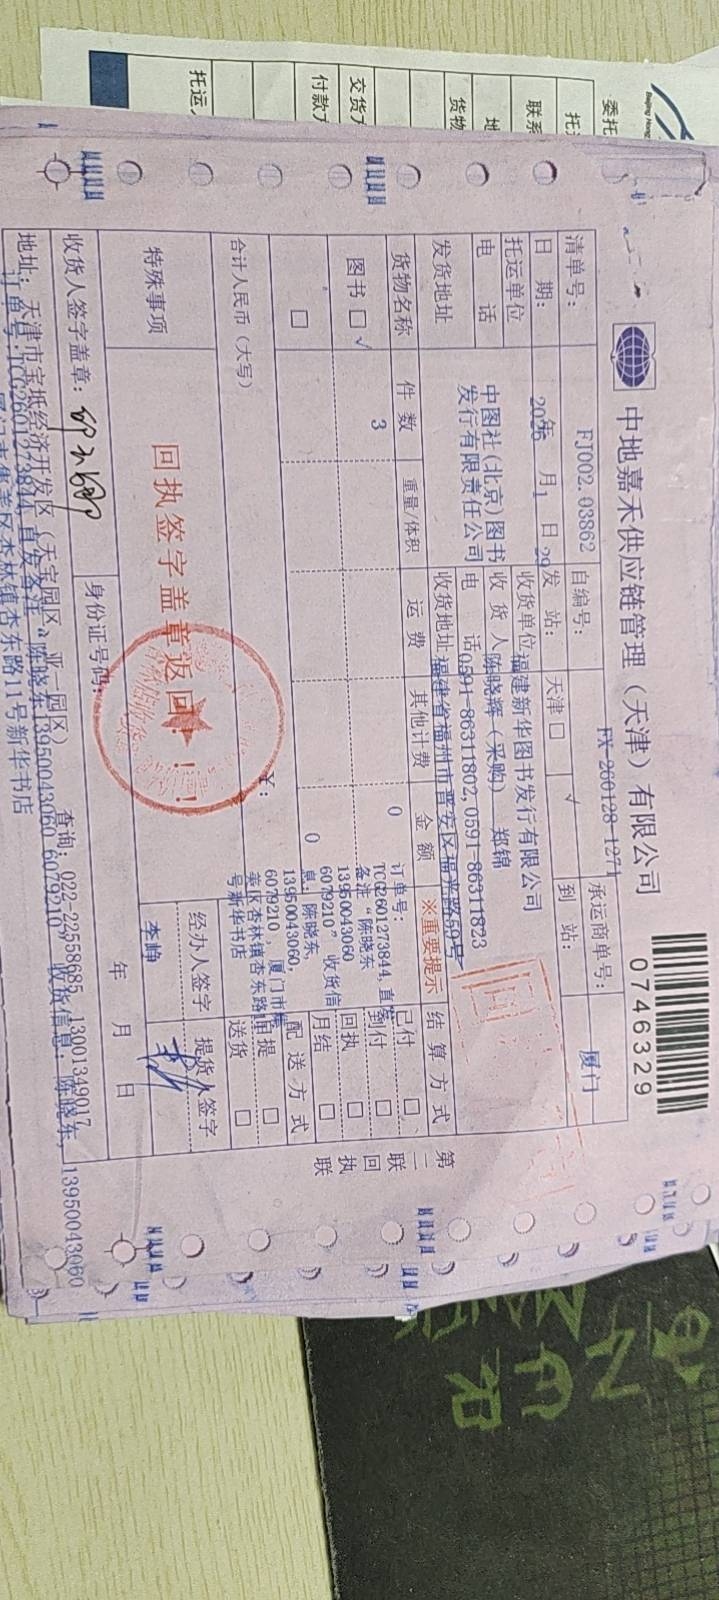 中地嘉禾供应链管理（天津）有限公司
0746329
FX-260128-1271
清单号： FJ002.03862 自编号： 承运商单号：
日 期： 2026年 1月 29日 发 站： 天津 □ √ 到 站： 厦门
托运单位 中图社(北京)图书发行有限责任公司 收货单位 福建新华图书发行有限公司
收 货 人 陈晓辉（采购） 郑锦
电 话 电 话 0591-86311802,0591-86311823
发货地址 收货地址 福建省福州市晋安区福光路59号
货物名称 件 数 重量/体积 运 费 其他计费 金 额 ※重要提示 结 算 方 式
图书 □ √ 3 0
□ 0
订单号：
TCG2601273844,直发
备注 “陈晓东
13950043060
6079210” 收货信
息：陈晓东,
13950043060,
6079210, 厦门市集
美区杏林镇杏东路11
号新华书店
已付 □
到付 □
回执 □
月结 □
配 送 方 式
自提 □
送货 □
合计人民币（大写） ￥：
特殊事项
回执签字盖章返回！！
经办人签字 提货人签字
李峥
收货人签字盖章： 身份证号码： 年 月 日
地址：天津市宝坻经济开发区（天宝园区 亚一园区） 查询：022-22558685 13001349017
订单号:TCG2601273844,直发备注“陈晓东13950043060 6079210” 收货信息：陈晓东, 13950043060
厦门市集美区杏林镇杏东路11号新华书店
第二联 回执联
委托
托运
联系
地
货物
交货方
付款方
托运人
Beijing Hong